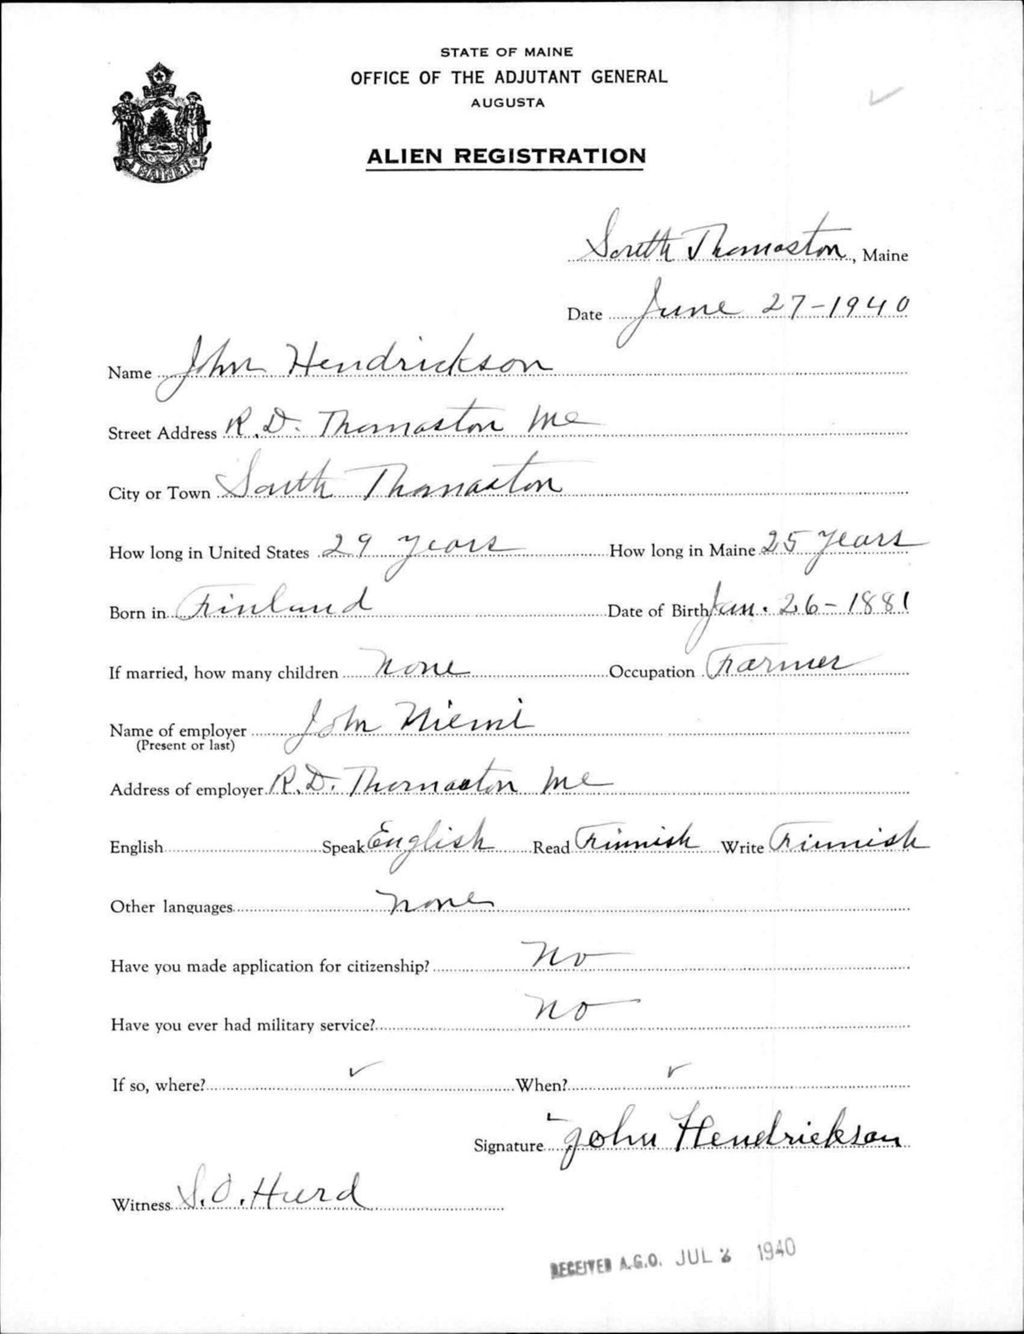 STATE OF MAINE
OFFICE OF THE ADJUTANT GENERAL
AUGUSTA
ALIEN REGISTRATION
South Thomaston, Maine
Date June 27-1940
Name John Hendrickson
Street Address R.D. Thomaston Me
City or Town South Thomaston
How long in United States 29 years How long in Maine 25 years
Born in Finland Date of Birth Jan. 26-1881
If married, how many children None Occupation Farmer
Name of employer John Niemi
(Present or last)
Address of employer R.D. Thomaston Me
English Speak English Read Finnish Write Finnish
Other languages None
Have you made application for citizenship? No
Have you ever had military service? No
If so, where? When?
Signature John Hendrickson
Witness S.O. Hurd
RECEIVED A.G.O. JUL 1940
MAINE